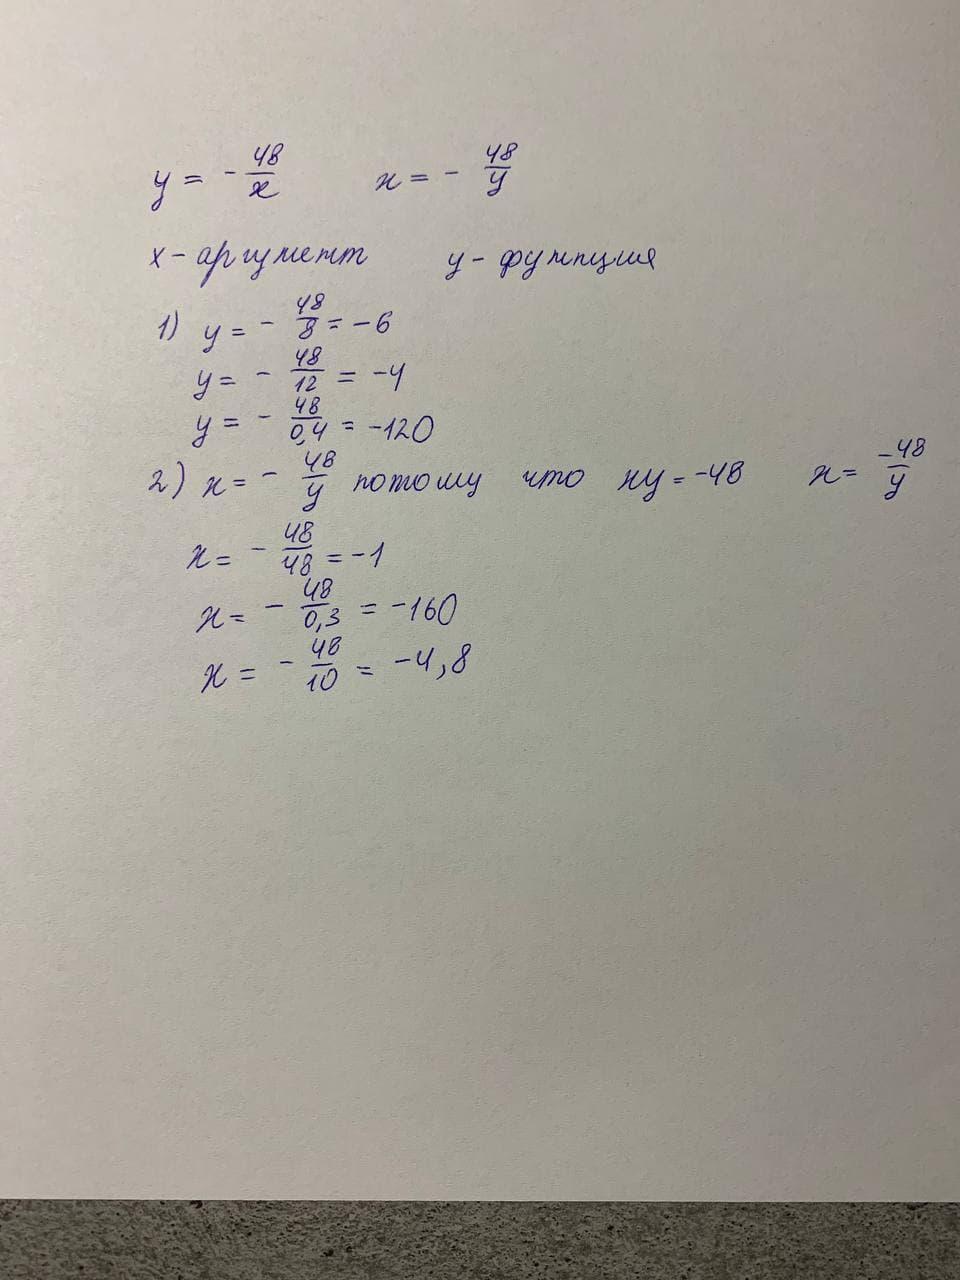 y = - 48/x x = - 48/y
x - аргумент y - функция
1) y = - 48/8 = -6
y = - 48/12 = -4
y = - 48/0,4 = -120
2) x = - 48/y потому что xy = -48 x = -48/y
x = - 48/48 = -1
x = - 48/0,3 = -160
x = - 48/10 = -4,8